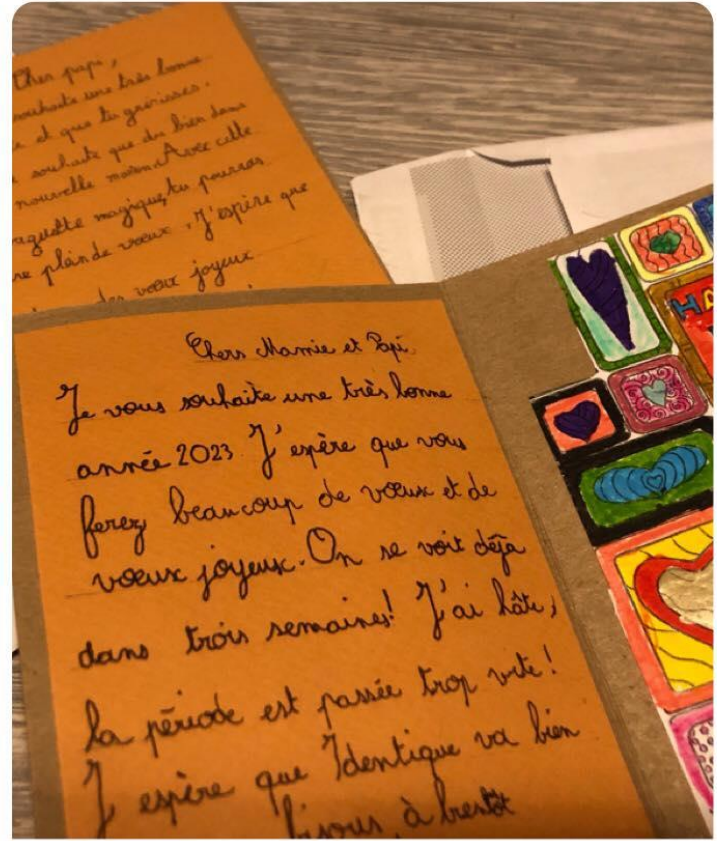 Cher papi,
souhaite une très bonne
e et que tu guérisses.
souhaite que du bien dans
nouvelle maison. Avec cette
baguette magique, tu pourras
re plein de vœux, J'espère que
des vœux joyeux
Chers Mamie et Papi
Je vous souhaite une très bonne
année 2023. J'espère que vous
ferez beaucoup de vœux et de
vœux joyeux. On se voit déjà
dans trois semaines! J'ai hâte,
la période est passée trop vite!
J'espère que Identique va bien
bisous, à bientôt
HA